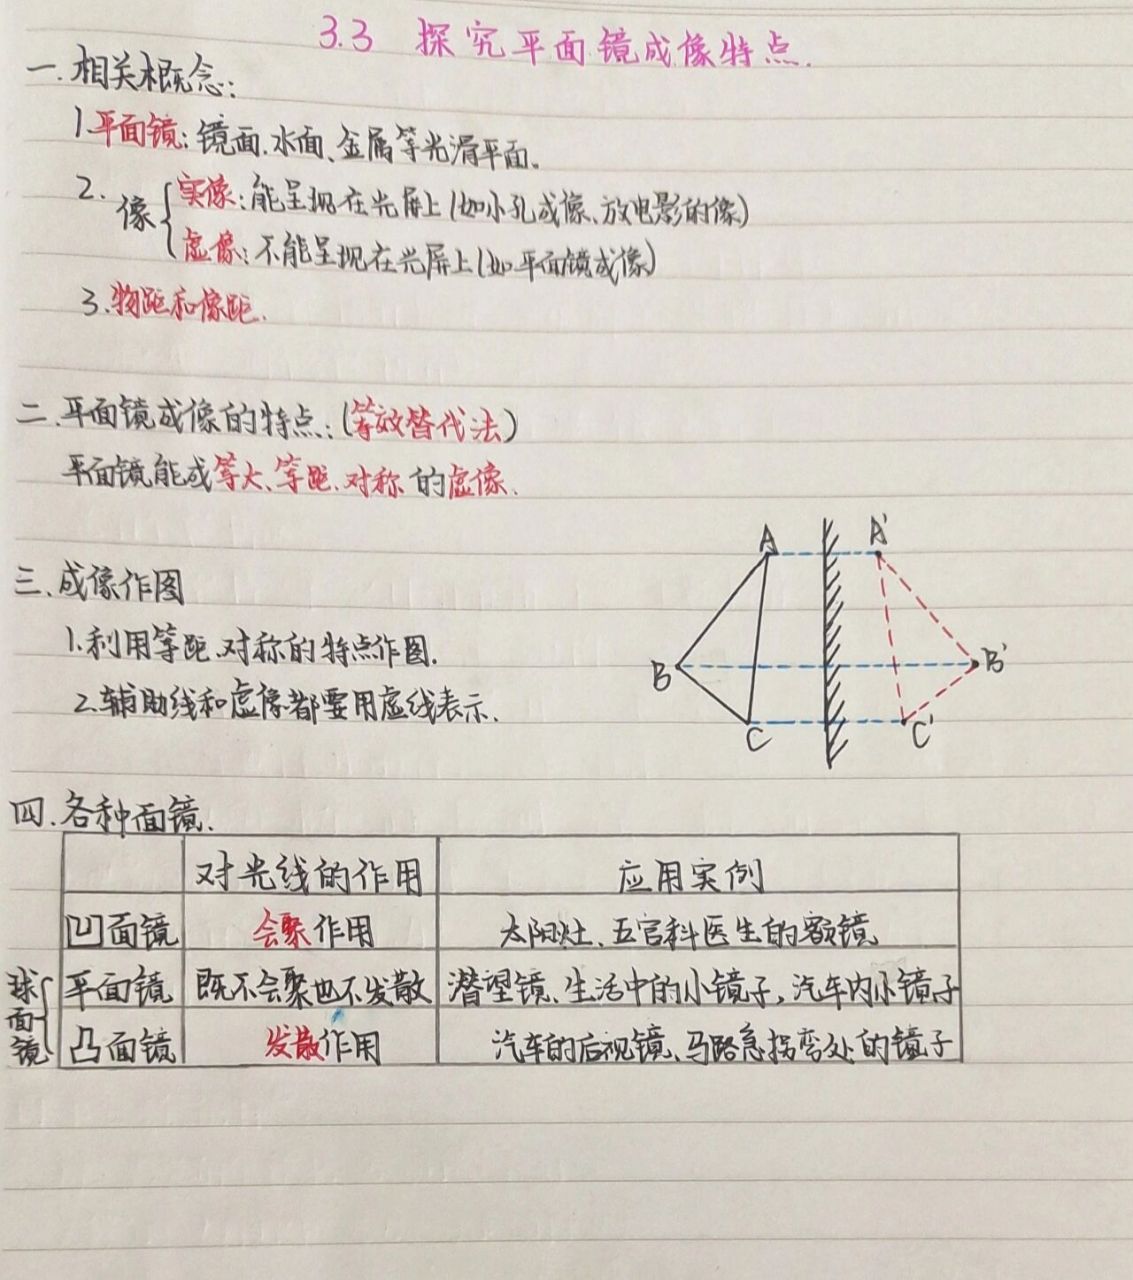 3.3 探究平面镜成像特点.
一.相关概念:
1.平面镜:镜面.水面、金属等光滑平面。
2.像
实像:能呈现在光屏上(如小孔成像、放电影的像)
虚像:不能呈现在光屏上(如平面镜成像)
3.物距和像距.
二.平面镜成像的特点:(等效替代法)
平面镜能成等大、等距.对称的虚像.
三.成像作图
1.利用等距.对称的特点作图.
2.辅助线和虚像都要用虚线表示.
A A'
B B'
C C'
四.各种面镜.
对光线的作用 应用实例
凹面镜 会聚作用 太阳灶、五官科医生的额镜
球面镜
平面镜 既不会聚也不发散 潜望镜、生活中的小镜子,汽车内小镜子
凸面镜 发散作用 汽车的后视镜、马路急拐弯处的镜子